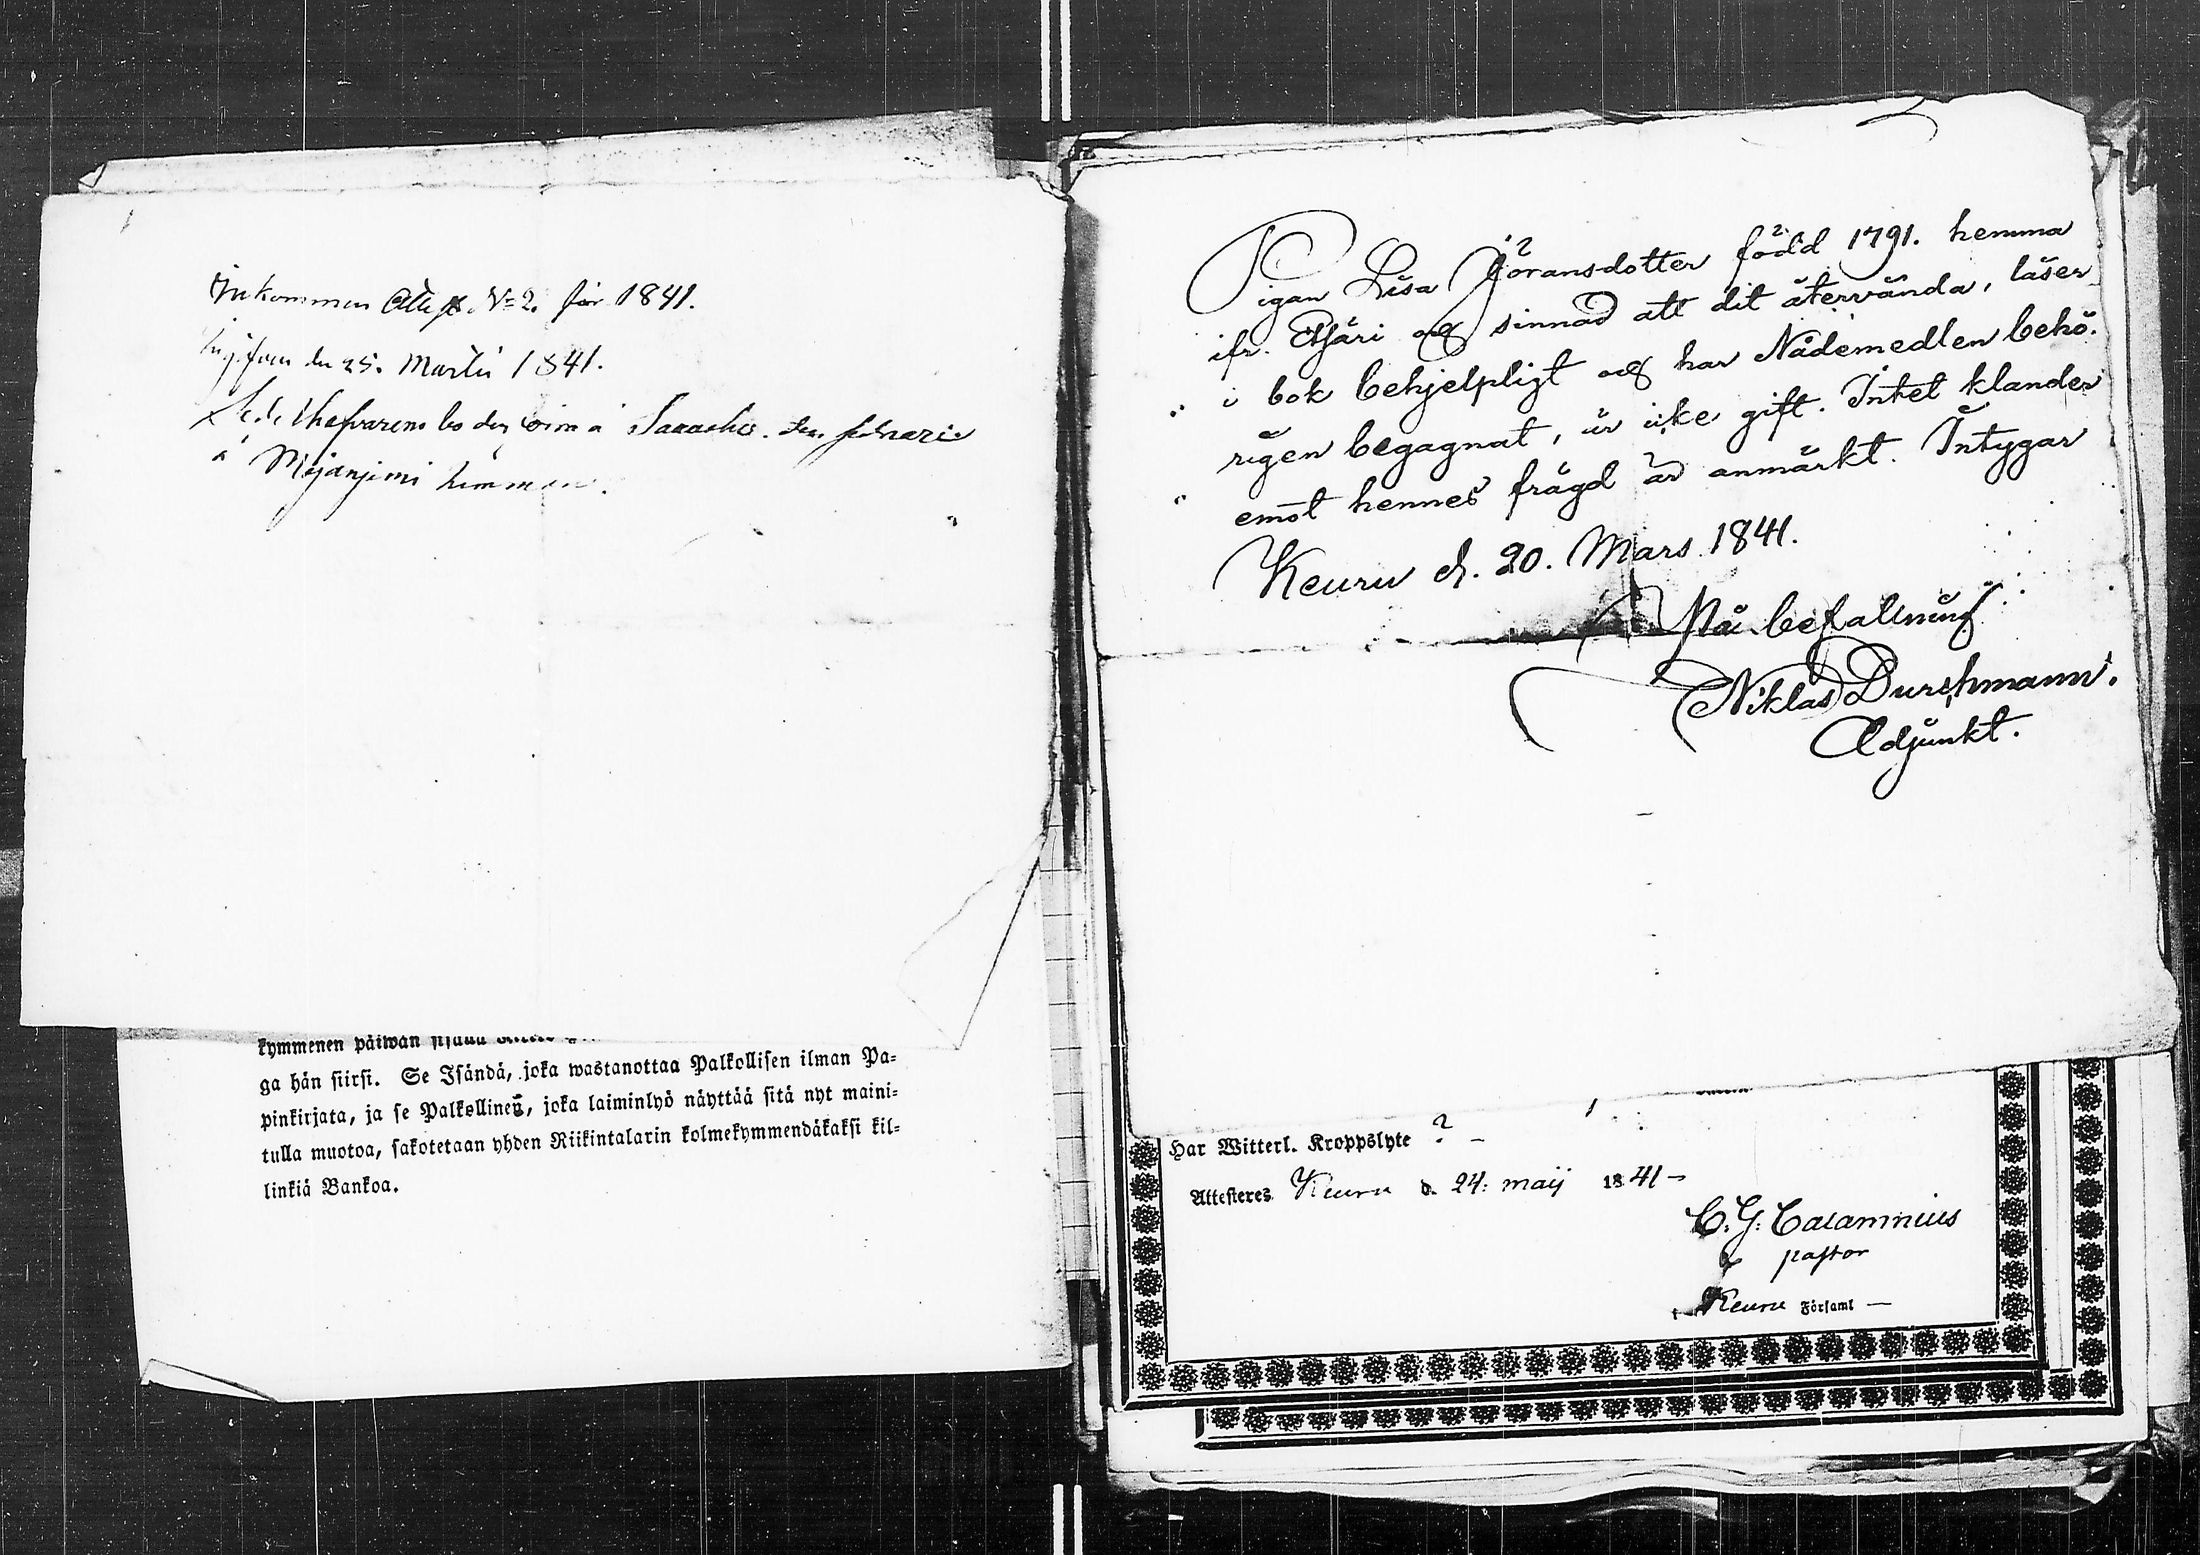 Inkommen Attest N=2. för 1841.
den 25. Martii 1841.
å
kymmenen päiwän
ga hän siirsi. Se Isändä, joka wastanottaa Palkollisen ilman Pa-
pinkirjata, ja se Palkollinen, joka laiminlyö näyttää sitä nyt maini-
tulla muotoa, sakotetaan yhden Riikintalarin kolmekymmendäkaksi kil-
linkiä Bankoa.
Pigan Lisa Jöransdotter född 1791. hemma
ifr. Etsäri och sinnad att dit återvända, läser
i bok behjelpligt och har Nådemedlen behö-
rigen begagnat, är icke gift. Intet klander
emot hennes frägd är anmärkt. Intygar
Keuru d. 20. Mars 1841.
På befallning
Niklas Durchmann.
Adjunkt.
Har Witterl. Kroppslyte ? –
Attesteres Keuru d. 24: maij 1841 –
C. G: Calamnius
pastor
Keuru Församl –